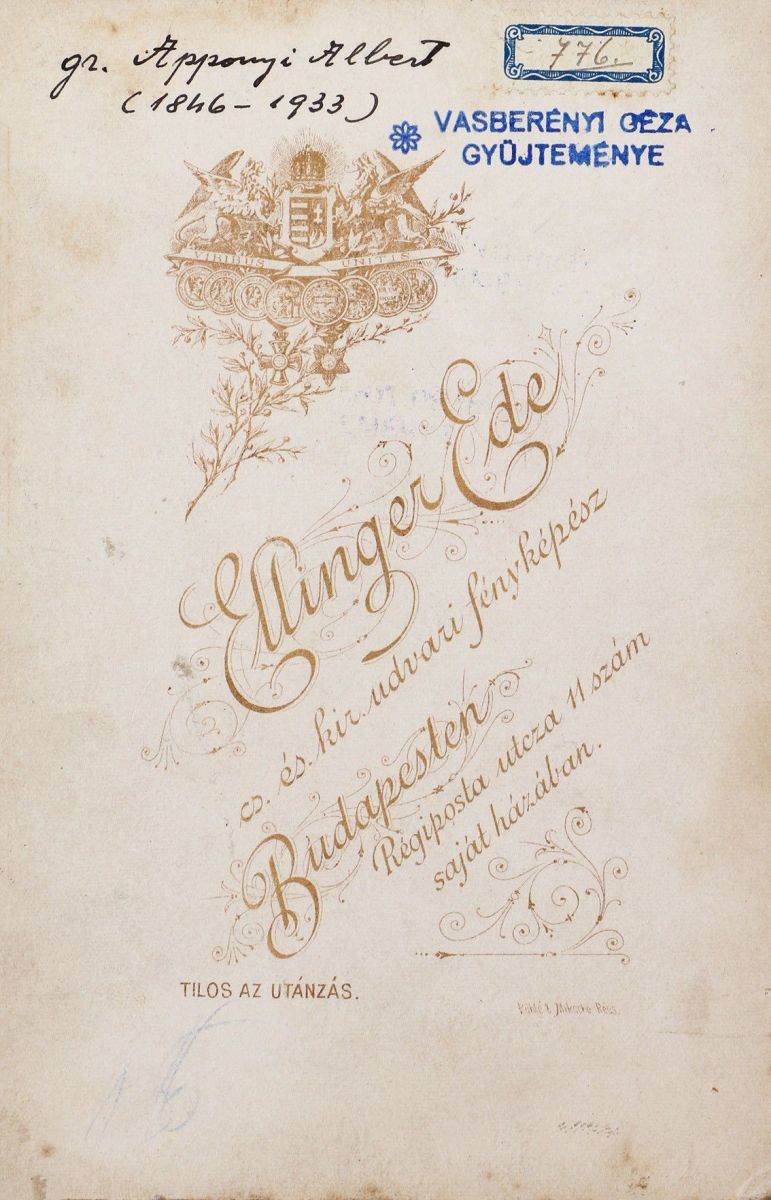 gr. Apponyi Albert
(1846-1933)
776.-
VASBERÉNYI GÉZA
GYŰJTEMÉNYE
VIRIBUS UNITIS
Ellinger Ede
cs. és. kir. udvari fényképész
Budapesten
Régiposta utcza 11 szám
saját házában.
TILOS AZ UTÁNZÁS.